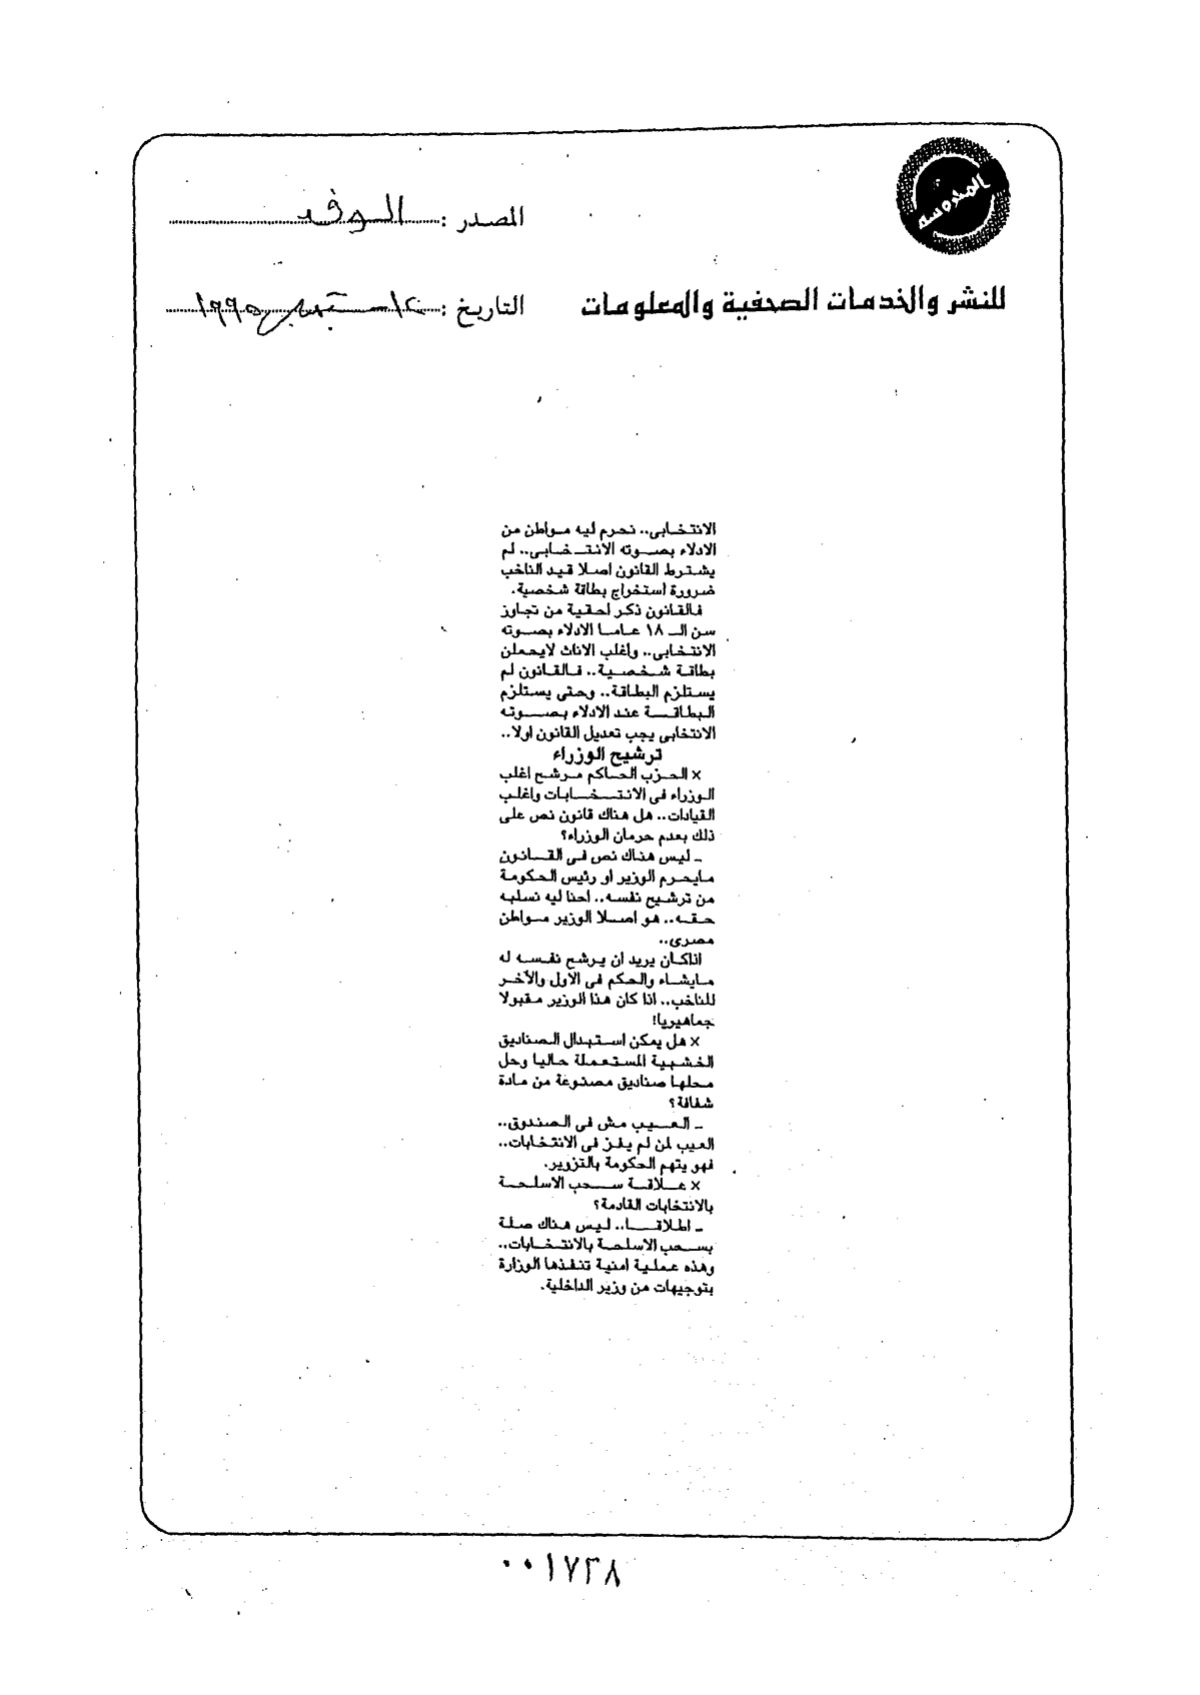 المحروسة
المصدر : الوفد
للنشر والخدمات الصحفية والمعلومات
التاريخ : سبتمبر ١٩٩٥
الانتخابى.. نحرم ليه مواطن من
الادلاء بصوته الانتخابى.. لم
يشترط القانون اصلا قيد الناخب
ضرورة استخراج بطاقة شخصية.
فالقانون ذكر احقية من تجاوز
سن الـ ١٨ عاما الادلاء بصوته
الانتخابى.. واغلب الاناث لايحملن
بطاقة شخصية.. فالقانون لم
يستلزم البطاقة.. وحتى يستلزم
البطاقة عند الادلاء بصوته
الانتخابى يجب تعديل القانون اولا..
ترشيح الوزراء
× الحزب الحاكم مرشح اغلب
الوزراء فى الانتخابات واغلب
القيادات.. هل هناك قانون نص على
ذلك بعدم حرمان الوزراء؟
ـ ليس هناك نص فى القانون
مايحرم الوزير او رئيس الحكومة
من ترشيح نفسه.. احنا ليه نسلبه
حقه.. هو اصلا الوزير مواطن
مصرى..
اذاكان يريد ان يرشح نفسه له
مايشاء والحكم فى الاول والآخر
للناخب.. اذا كان هذا الوزير مقبولا
جماهيريا!
× هل يمكن استبدال الصناديق
الخشبية المستعملة حاليا وحل
محلها صناديق مصنوعة من مادة
شفافة؟
ـ العيب مش فى الصندوق..
العيب لمن لم يفز فى الانتخابات..
فهو يتهم الحكومة بالتزوير.
× علاقة سحب الاسلحة
بالانتخابات القادمة؟
ـ اطلاقا.. ليس هناك صلة
بسحب الاسلحة بالانتخابات..
وهذه عملية امنية تنفذها الوزارة
بتوجيهات من وزير الداخلية.
٠٠١٧٢٨